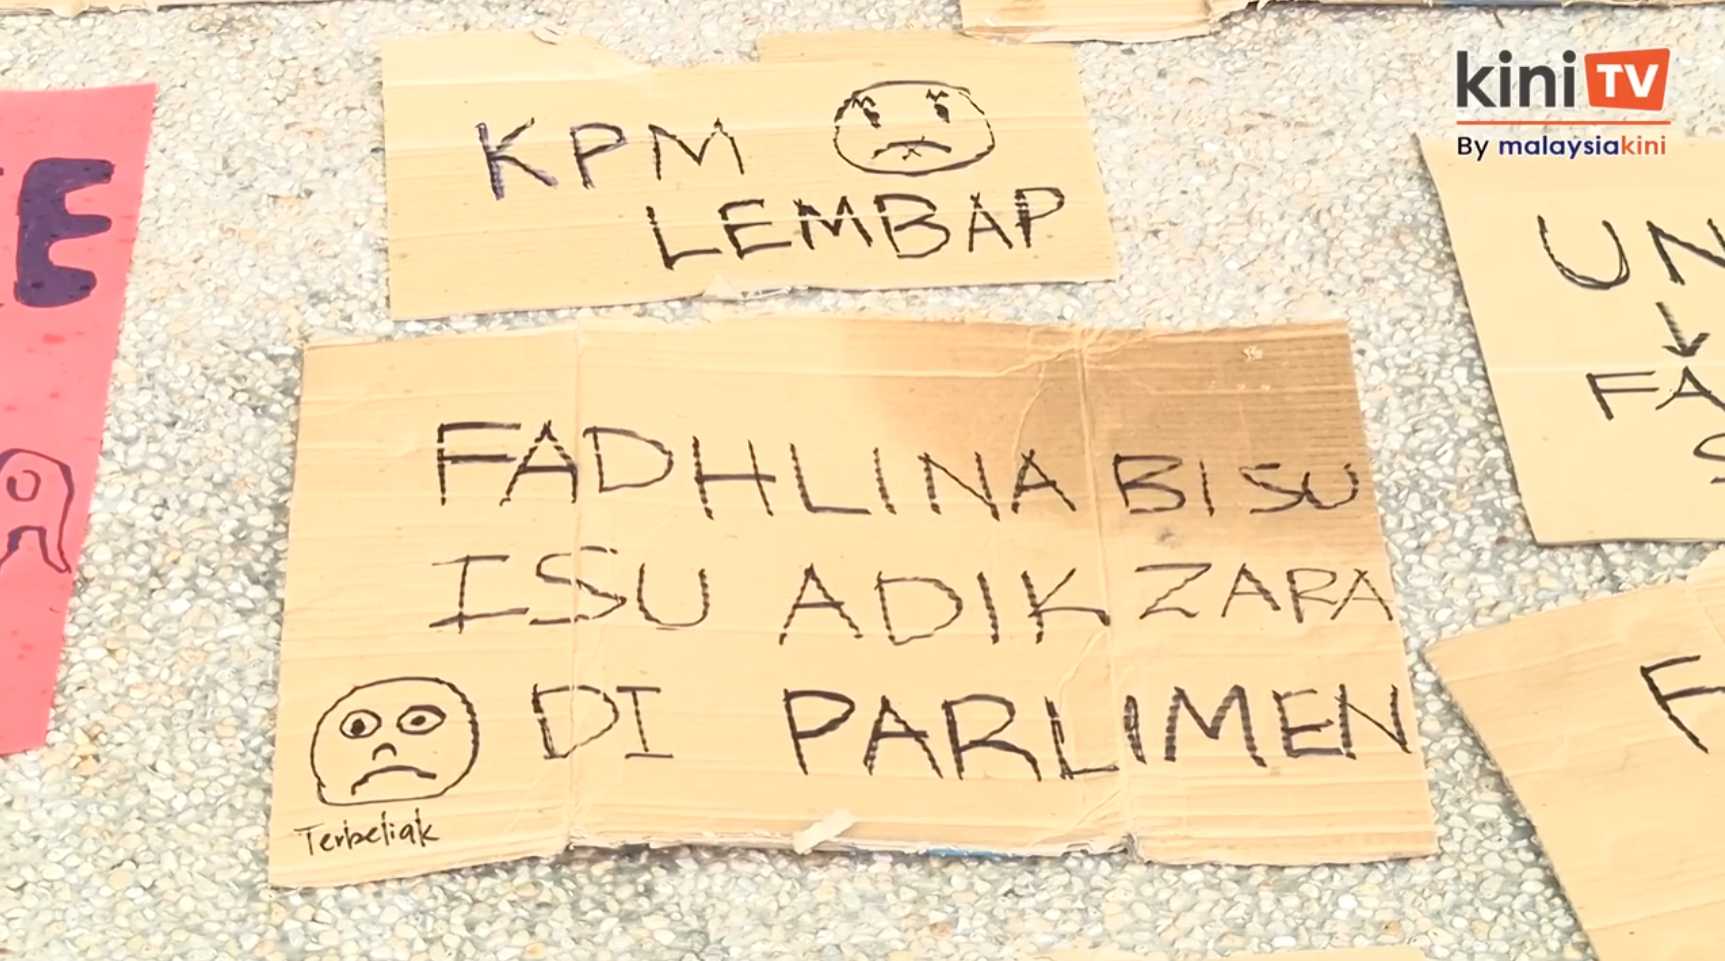 kini TV
By malaysiakini
KPM
LEMBAP
FADHLINA BISU
ISU ADIK ZARA
DI PARLIMEN
Terbeliak
UN
FA
S
F
E